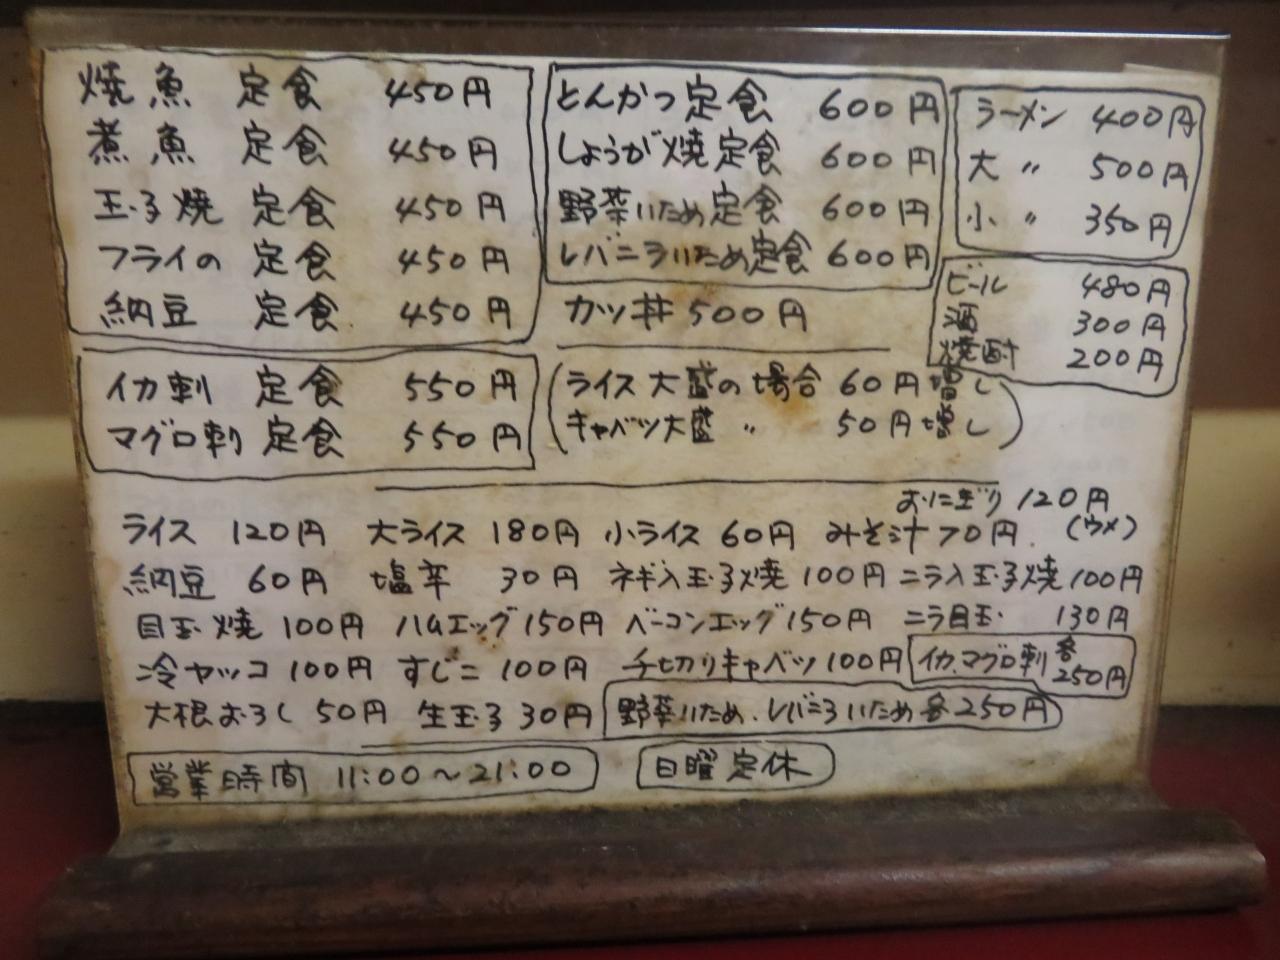 焼魚 定食 450円
煮魚 定食 450円
玉子焼 定食 450円
フライの 定食 450円
納豆 定食 450円
イカ刺 定食 550円
マグロ刺 定食 550円
とんかつ定食 600円
しょうが焼定食 600円
野菜いため定食 600円
レバニラいため定食 600円
カツ丼 500円
(ライス大盛の場合 60円増し
キャベツ大盛 〃 50円増し)
ラーメン 400円
大 〃 500円
小 〃 350円
ビール 480円
酒 300円
焼酎 200円
おにぎり 120円
ライス 120円 大ライス 180円 小ライス 60円 みそ汁 70円. (ウメ)
納豆 60円 塩辛 30円 ネギ入玉子焼 100円 ニラ入玉子焼 100円
目玉焼 100円 ハムエッグ 150円 ベーコンエッグ 150円 ニラ目玉 130円
冷ヤッコ 100円 すじこ 100円 千切りキャベツ 100円 イカ、マグロ刺 各250円
大根おろし 50円 生玉子 30円 野菜いため、レバニラいため 各250円
営業時間 11:00～21:00 日曜定休